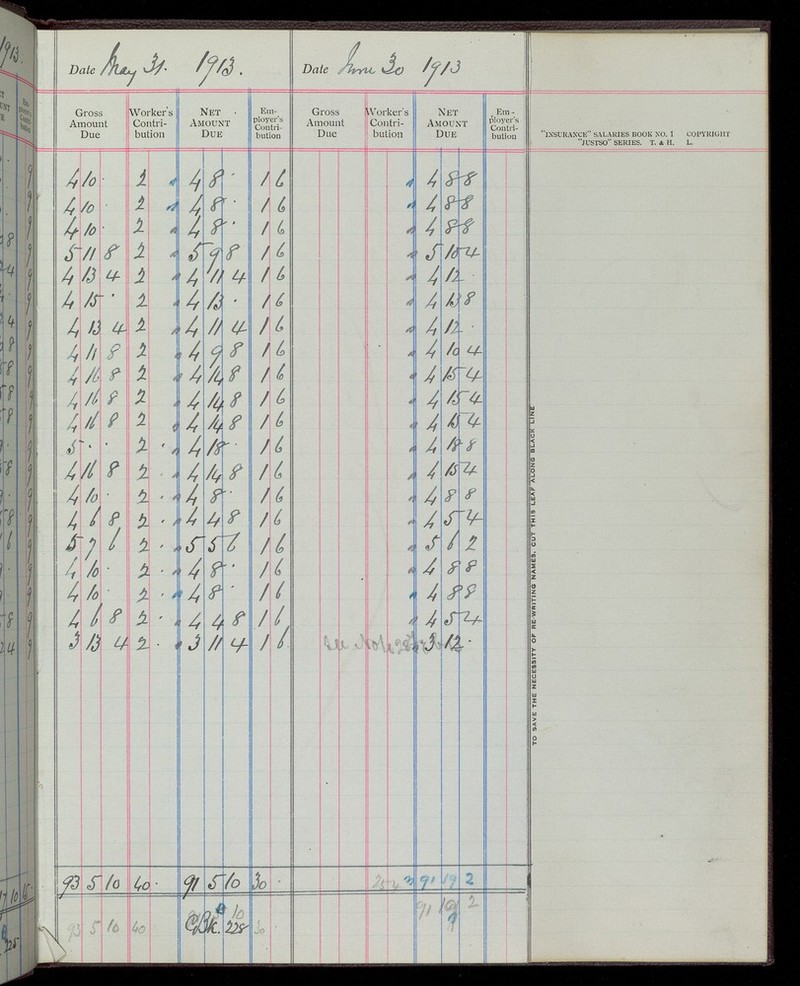 Date May 31. 1913. Date June 30 1913
Gross Amount Due Worker's Contri- bution NET AMOUNT DUE Em- ployer's Contri- bution Gross Amount Due Worker's Contri- bution NET AMOUNT DUE Em- ployer's Contri- bution
"INSURANCE" SALARIES BOOK NO. 1 COPYRIGHT
"JUSTSO" SERIES. T. & H. L.
4 10 · 2 4 8 · 1 6 4 8 8
4 10 · 2 4 8 · 1 6 4 8 8
4 10 · 2 4 8 · 1 6 4 8 8
5 11 8 2 5 9 8 1 6 5 10 4
4 13 4 2 4 11 4 1 6 4 12 ·
4 15 · 2 4 13 · 1 6 4 13 8
4 13 4 2 4 11 4 1 6 4 12 ·
4 11 8 2 4 9 8 1 6 4 10 4
4 16 8 2 4 14 8 1 6 4 15 4
4 16 8 2 4 14 8 1 6 4 15 4
4 16 8 2 4 14 8 1 6 4 15 4
5 · · 2 · 4 18 · 1 6 4 18 8
4 16 8 2 · 4 14 8 1 6 4 15 4
4 10 · 2 · 4 8 · 1 6 4 8 8
4 6 8 2 · 4 4 8 1 6 4 5 4
5 7 6 2 · 5 5 6 1 6 5 6 2
4 10 · 2 · 4 8 · 1 6 4 8 8
4 10 · 2 · 4 8 · 1 6 4 8 8
4 6 8 2 · 4 4 8 1 6 4 5 4
3 13 4 2 · 3 11 4 1 6 See Note 3 12 ·
93 5 10 40 · 91 5 10 30 · 91 19 2
93 5 10 40 10 30 91 19 2
CBk. 228
TO SAVE THE NECESSITY OF RE-WRITING NAMES, CUT THIS LEAF ALONG BLACK LINE